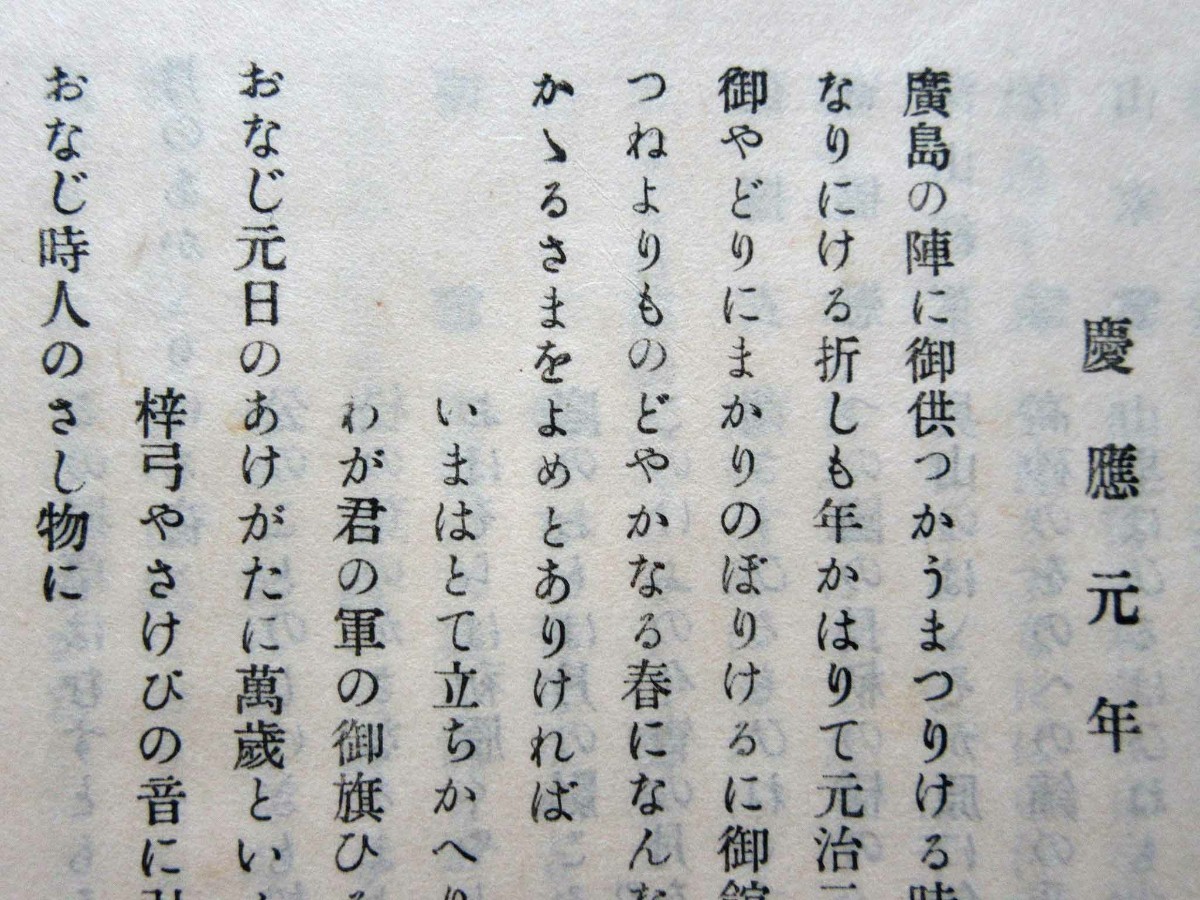 慶應元年
廣島の陣に御供つかうまつりける時
なりにける折しも年かはりて元治二
御やどりにまかりのぼりけるに御館
つねよりものどやかなる春になんな
かゝるさまをよめとありければ
いまはとて立ちかへり
わが君の軍の御旗ひ
おなじ元日のあけがたに萬歳とい
梓弓やさけびの音に引
おなじ時人のさし物に